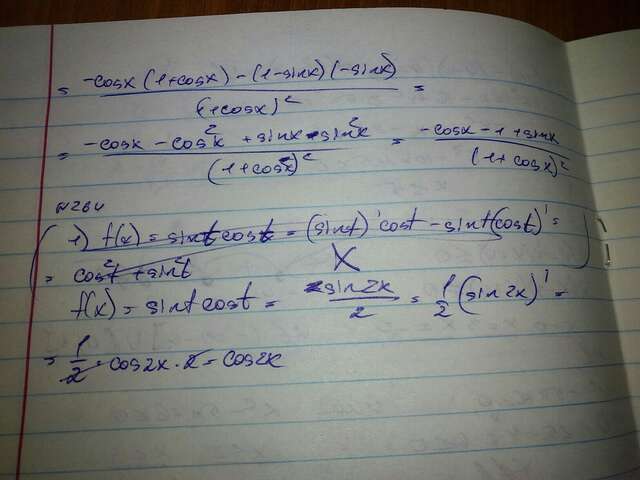 = -cosx (1+cosx) - (1-sinx)(-sinx) / (1+cosx)² =
= -cosx - cos²x + sinx - sin²x / (1+cosx)² = -cosx - 1 + sinx / (1+cosx)²
N264
1) f(x) = sint cost = (sint)' cost - sint(cost)' =
= cos²t + sin²t
f(x) = sint cost = sin2x / 2 = 1/2 (sin2x)' =
= 1/2 · cos2x · 2 = cos2x